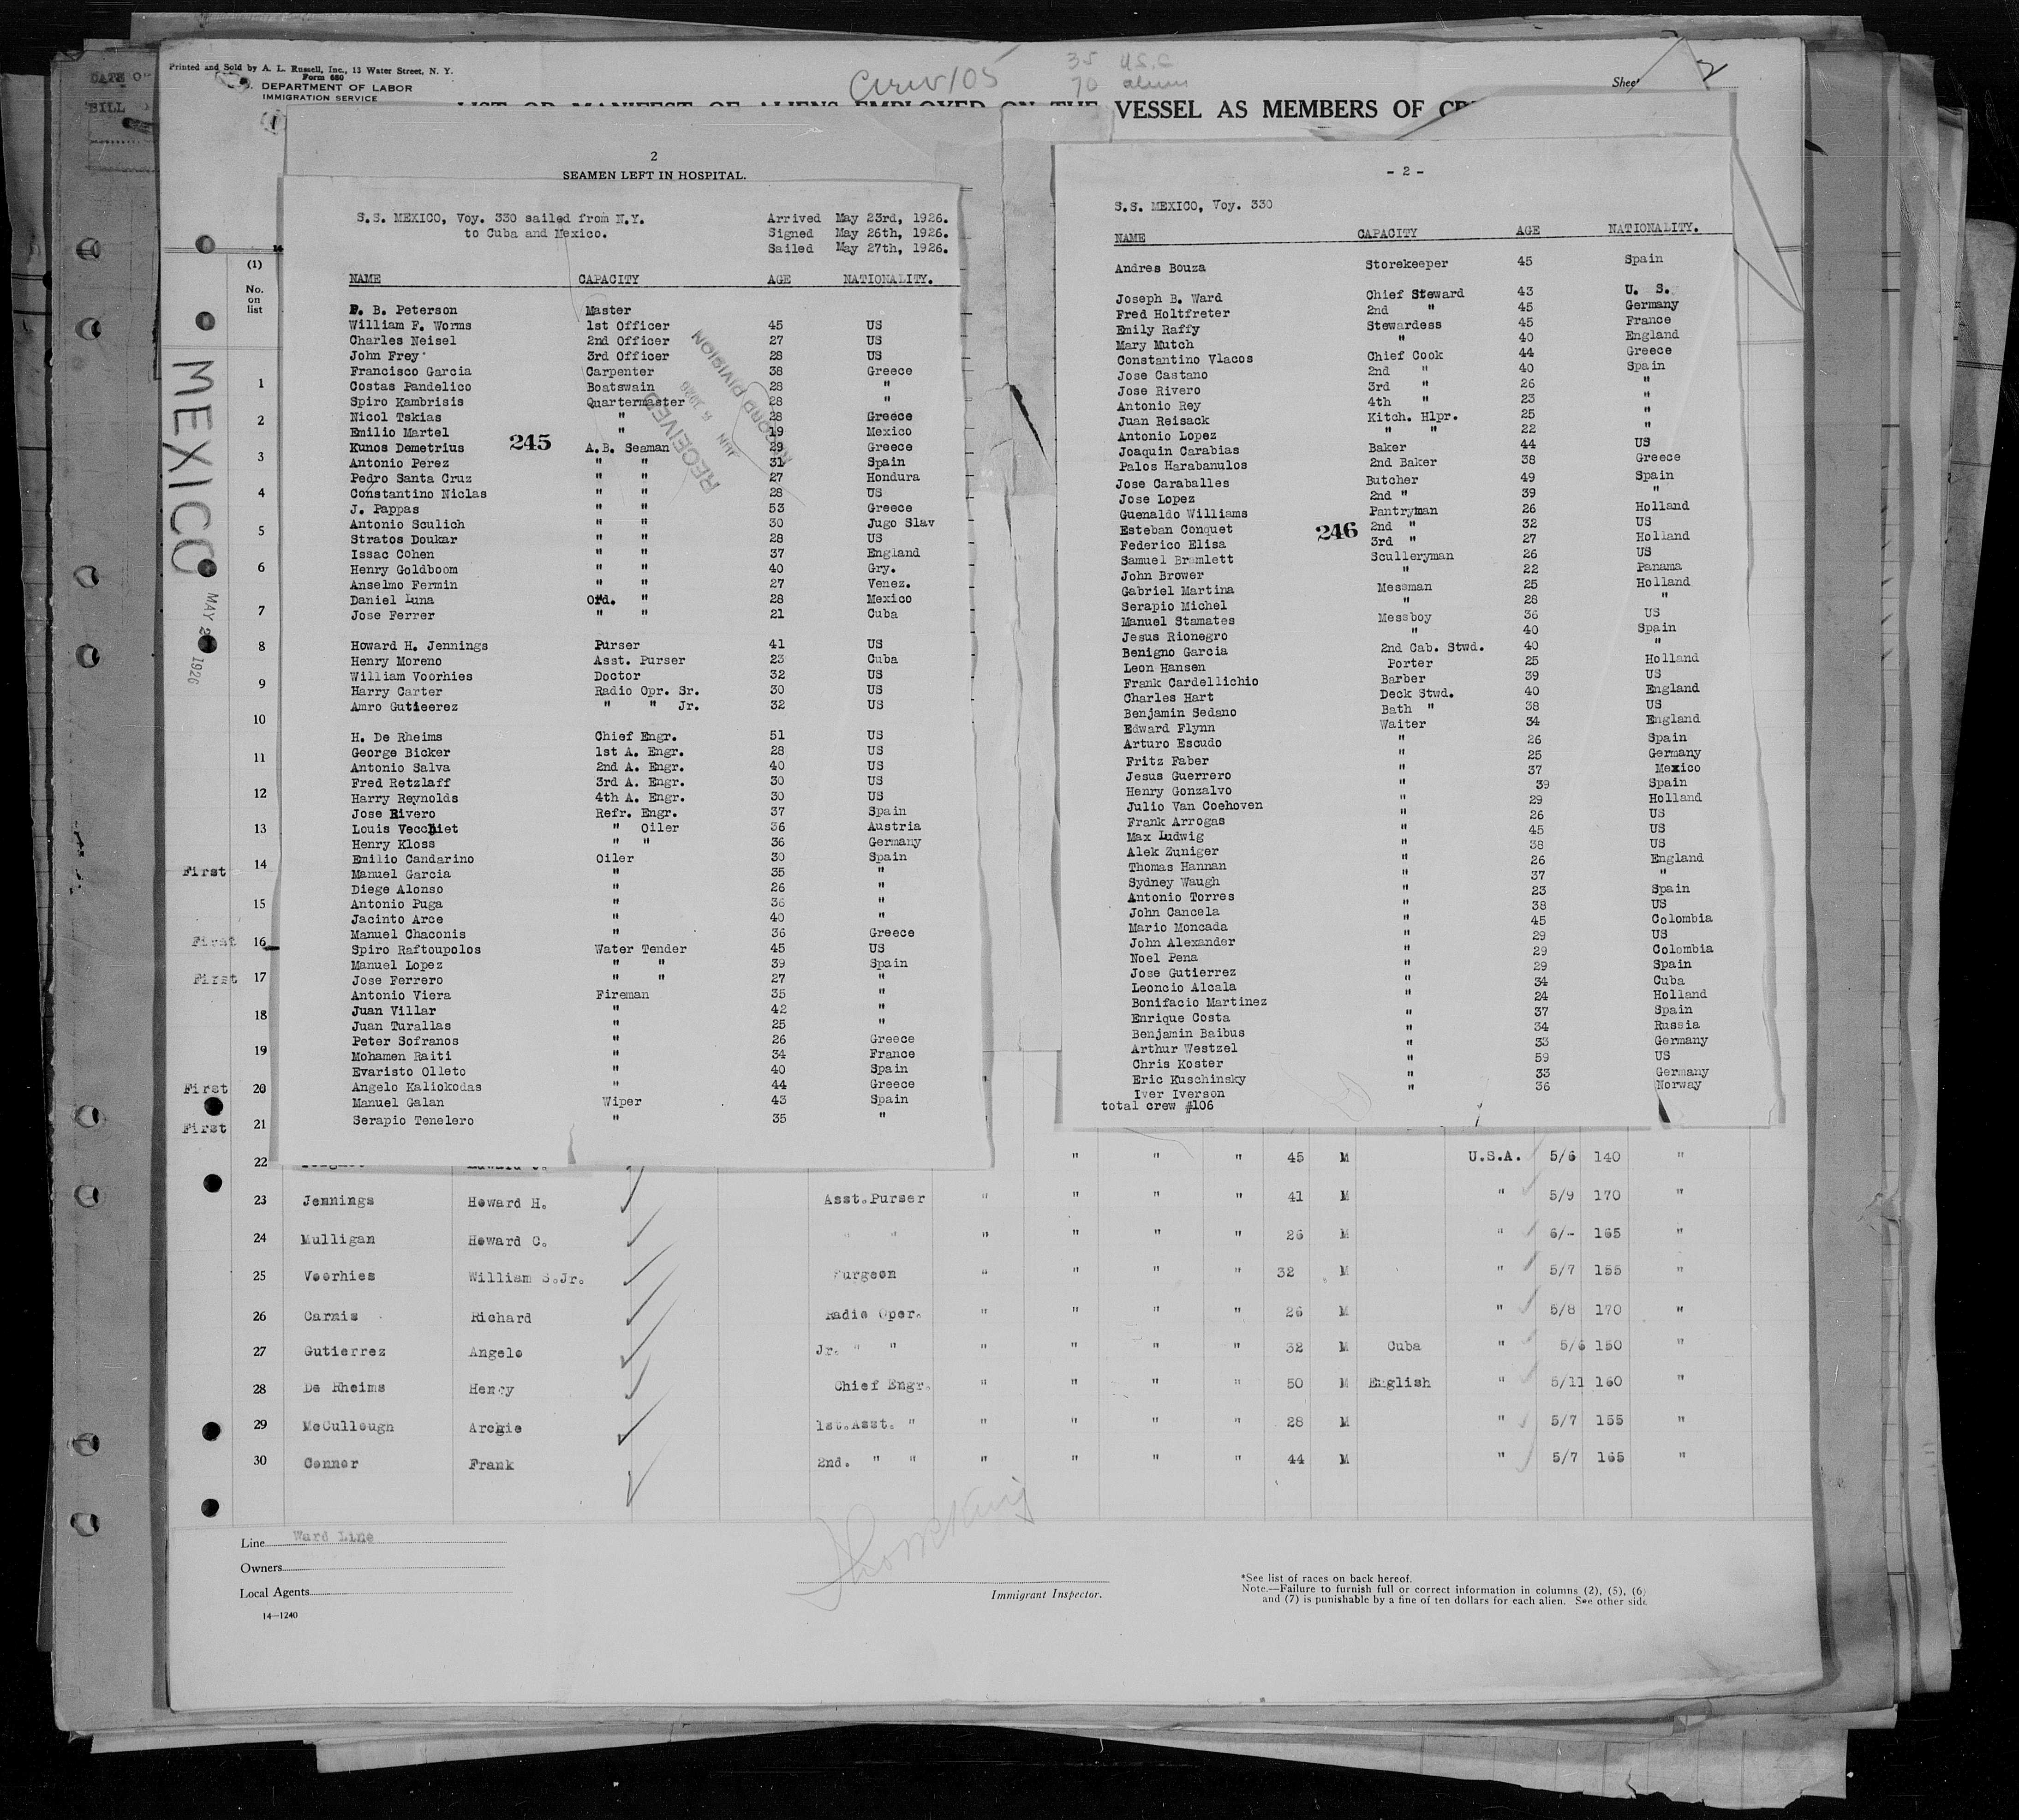 Printed and Sold by A. L. Russell, Inc., 13 Water Street, N. Y.
Form 680
DEPARTMENT OF LABOR
IMMIGRATION SERVICE
Crew 105
35 U.S.C
70 aliens
Sheet 2
LIST OR MANIFEST OF ALIENS EMPLOYED ON THE VESSEL AS MEMBERS OF
MEXICO
MAY 2 1926
2
SEAMEN LEFT IN HOSPITAL.
S.S. MEXICO, Voy. 330 sailed from N.Y. Arrived May 23rd, 1926.
to Cuba and Mexico. Signed May 26th, 1926.
Sailed May 27th, 1926.
NAME CAPACITY AGE NATIONALITY.
P. B. Peterson Master
William F. Worms 1st Officer 45 US
Charles Neisel 2nd Officer 27 US
John Frey 3rd Officer 28 US
Francisco Garcia Carpenter 38 Greece
Costas Pandelico Boatswain 28 "
Spiro Kambrisis Quartermaster 28 "
Nicol Tskias " 28 Greece
Emilio Martel " 19 Mexico
245
Kunos Demetrius A.B. Seaman 29 Greece
Antonio Perez " " 31 Spain
Pedro Santa Cruz " " 27 Hondura
Constantino Niclas " " 28 US
J. Pappas " " 53 Greece
Antonio Sculich " " 30 Jugo Slav
Stratos Doukar " " 28 US
Issac Cohen " " 37 England
Henry Goldboom " " 40 Gry.
Anselmo Fermin " " 27 Venez.
Daniel Luna Ord. " 28 Mexico
Jose Ferrer " " 21 Cuba
Howard H. Jennings Purser 41 US
Henry Moreno Asst. Purser 23 Cuba
William Voorhies Doctor 32 US
Harry Carter Radio Opr. Sr. 30 US
Amro Gutieerez " " Jr. 32 US
H. De Rheims Chief Engr. 51 US
George Bicker 1st A. Engr. 28 US
Antonio Salva 2nd A. Engr. 40 US
Fred Retzlaff 3rd A. Engr. 30 US
Harry Reynolds 4th A. Engr. 30 US
Jose Rivero Refr. Engr. 37 Spain
Louis Vecchiet " Oiler 36 Austria
Henry Kloss " " 36 Germany
Emilio Candarino Oiler 30 Spain
Manuel Garcia " 35 "
Diege Alonso " 26 "
Antonio Puga " 36 "
Jacinto Arce " 40 "
Manuel Chaconis " 36 Greece
Spiro Raftoupolos Water Tender 45 US
Manuel Lopez " " 39 Spain
Jose Ferrero " " 27 "
Antonio Viera Fireman 35 "
Juan Villar " 42 "
Juan Turallas " 25 "
Peter Sofranos " 26 Greece
Mohamen Raiti " 34 France
Evaristo Olleto " 40 Spain
Angelo Kaliokodas " 44 Greece
Manuel Galan Wiper 43 Spain
Serapio Tenelero " 35 "
RECEIVED
JUN 5 1926
RECORD DIVISION
- 2 -
S.S. MEXICO, Voy. 330
NAME CAPACITY AGE NATIONALITY.
Andres Bouza Storekeeper 45 Spain
Joseph B. Ward Chief Steward 43 U. S.
Fred Holtfreter 2nd " 45 Germany
Emily Raffy Stewardess 45 France
Mary Mutch " 40 England
Constantino Vlacos Chief Cook 44 Greece
Jose Castano 2nd " 40 Spain
Jose Rivero 3rd " 26 "
Antonio Rey 4th " 23 "
Juan Reisack Kitch. Hlpr. 25 "
Antonio Lopez " " 22 "
Joaquin Carabias Baker 44 US
Palos Harabanulos 2nd Baker 38 Greece
Jose Caraballes Butcher 49 Spain
Jose Lopez 2nd " 39 "
Guenaldo Williams Pantryman 26 Holland
246
Esteban Conquet 2nd " 32 US
Federico Elisa 3rd " 27 Holland
Samuel Bramlett Sculleryman 26 US
John Brower " 22 Panama
Gabriel Martina Messman 25 Holland
Serapio Michel " 28 "
Manuel Stamates Messboy 36 US
Jesus Rionegro " 40 Spain
Benigno Garcia 2nd Cab. Stwd. 40 "
Leon Hansen Porter 25 Holland
Frank Cardellichio Barber 39 US
Charles Hart Deck Stwd. 40 England
Benjamin Sedano Bath " 38 US
Edward Flynn Waiter 34 England
Arturo Escudo " 26 Spain
Fritz Faber " 25 Germany
Jesus Guerrero " 37 Mexico
Henry Gonzalvo " 39 Spain
Julio Van Coehoven " 29 Holland
Frank Arrogas " 26 US
Max Ludwig " 45 US
Alek Zuniger " 38 US
Thomas Hannan " 26 England
Sydney Waugh " 37 "
Antonio Torres " 23 Spain
John Cancela " 38 US
Mario Moncada " 45 Colombia
John Alexander " 29 US
Noel Pena " 29 Colombia
Jose Gutierrez " 29 Spain
Leoncio Alcala " 34 Cuba
Bonifacio Martinez " 24 Holland
Enrique Costa " 37 Spain
Benjamin Baibus " 34 Russia
Arthur Westzel " 33 Germany
Chris Koster " 59 US
Eric Kuschinsky " 33 Germany
Iver Iverson " 36 Norway
total crew #106
(1)
No.
on
list
1
2
3
4
5
6
7
8
9
10
11
12
13
First 14
15
First 16
First 17
18
19
First 20
First 21
22 " " " 45 M U.S.A. 5/6 140 "
23 Jennings Howard H. Asst.Purser " " " " 41 M " 5/9 170 "
24 Mulligan Howard C. " " " " " " 26 M " 6/- 165 "
25 Voorhies William S.Jr. Surgeon " " " " 32 M " 5/7 155 "
26 Carnis Richard Radio Oper. " " " " 26 M " 5/8 170 "
27 Gutierrez Angelo Jr. " " " " " " 32 M Cuba " 5/6 150 "
28 De Rheims Henry Chief Engr. " " " " 50 M English " 5/11 160 "
29 McCullough Archie 1st.Asst. " " " " " 28 M " 5/7 155 "
30 Connor Frank 2nd. " " " " " " 44 M " 5/7 165 "
Line Ward Line
Owners
Local Agents
14—1240
Immigrant Inspector.
*See list of races on back hereof.
Note.—Failure to furnish full or correct information in columns (2), (5), (6)
and (7) is punishable by a fine of ten dollars for each alien. See other side